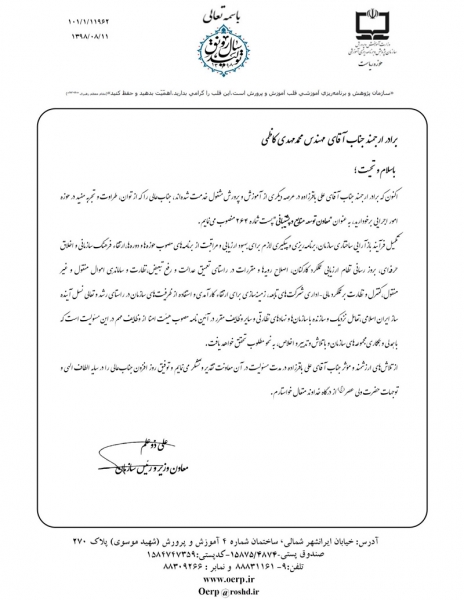 باسمه تعالی
۱۰۱/۱/۱۱۹۶۲
۱۳۹۸/۰۸/۱۱
سال رونق تولید
سازمان پژوهش و برنامه‌ریزی آموزشی
حوزه ریاست
«سازمان پژوهش و برنامه‌ریزی آموزشی قلب آموزش و پرورش است، این قلب را گرامی بدارید، اهمّیّت بدهید و حفظ کنید»
برادر ارجمند جناب آقای مهندس محمدمهدی کاظمی
باسلام و تحیت؛
اکنون که برادر ارجمند جناب آقای علی باقرزاده در عرصه دیگری از آموزش و پرورش مشغول خدمت شده‌اند، جناب‌عالی را که از توان، طراوت و تجربه مفید در حوزه
امور اجرایی برخوردارید، به عنوان «معاون توسعه منابع و پشتیبانی» پست شماره ۲۶۴ منصوب می‌نمایم.
تکمیل فرآیند بازآرایی ساختاری سازمان، برنامه‌ریزی و پیگیری لازم برای بهبود ارزیابی و مراقبت از برنامه‌های مصوب حوزه‌ها و دوره‌ها، ارتقاء فرهنگ سازمانی و اخلاق
حرفه‌ای، بروز رسانی نظام ارزیابی عملکرد کارکنان، اصلاح رویه‌ها و مقررات در راستای تحقق عدالت و رفع تبعیض، نظارت و ساماندهی اموال منقول و غیر
منقول، کنترل و نظارت بر عملکرد مالی - اداری شرکت‌های تابعه، زمینه‌سازی برای ارتقاء کارآمدی و استفاده از ظرفیت‌های سازمان در راستای رشد و تعالی نسل آینده
ساز ایران اسلامی، تعامل نزدیک و سازنده با سازمان‌ها و نهادهای نظارتی و سایر وظایف مقرر در آئین نامه مصوب هیئت امنا از وظایف مهم در این مسئولیت است که
با همدلی و همکاری مجموعه‌های سازمان و با تلاش و تدبیر و اخلاص، به نحو مطلوب تحقق خواهد یافت.
از تلاش‌های ارزشمند و موثر جناب آقای علی باقرزاده در مدت مسئولیت در آن معاونت تقدیر و تشکر می‌نمایم و توفیق روز افزون جناب‌عالی را در سایه الطاف الهی و
توجهات حضرت ولی عصر (عج) از درگاه خداوند متعال خواستارم.
علی ذوعلم
معاون وزیر و رئیس سازمان
آدرس: خیابان ایرانشهر شمالی، ساختمان شماره ۴ آموزش و پرورش (شهید موسوی) پلاک ۲۷۰
صندوق پستی: ۱۵۸۷۵/۴۸۷۴ - کدپستی: ۱۵۸۴۷۴۷۳۵۹
تلفن: ۹-۸۸۸۳۱۱۶۱ و نمابر: ۸۸۳۰۹۲۶۶
www.oerp.ir
Oerp @roshd.ir